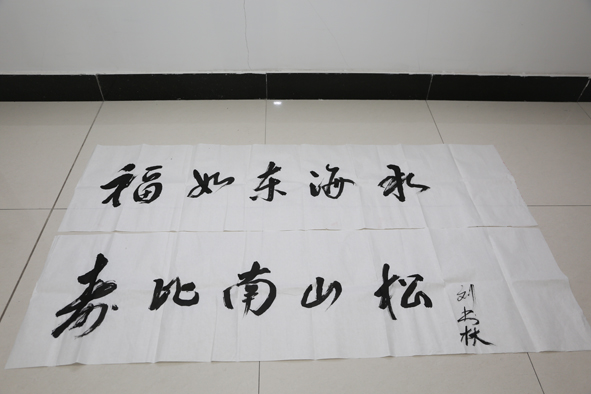 福如东海水
寿比南山松
刘书林